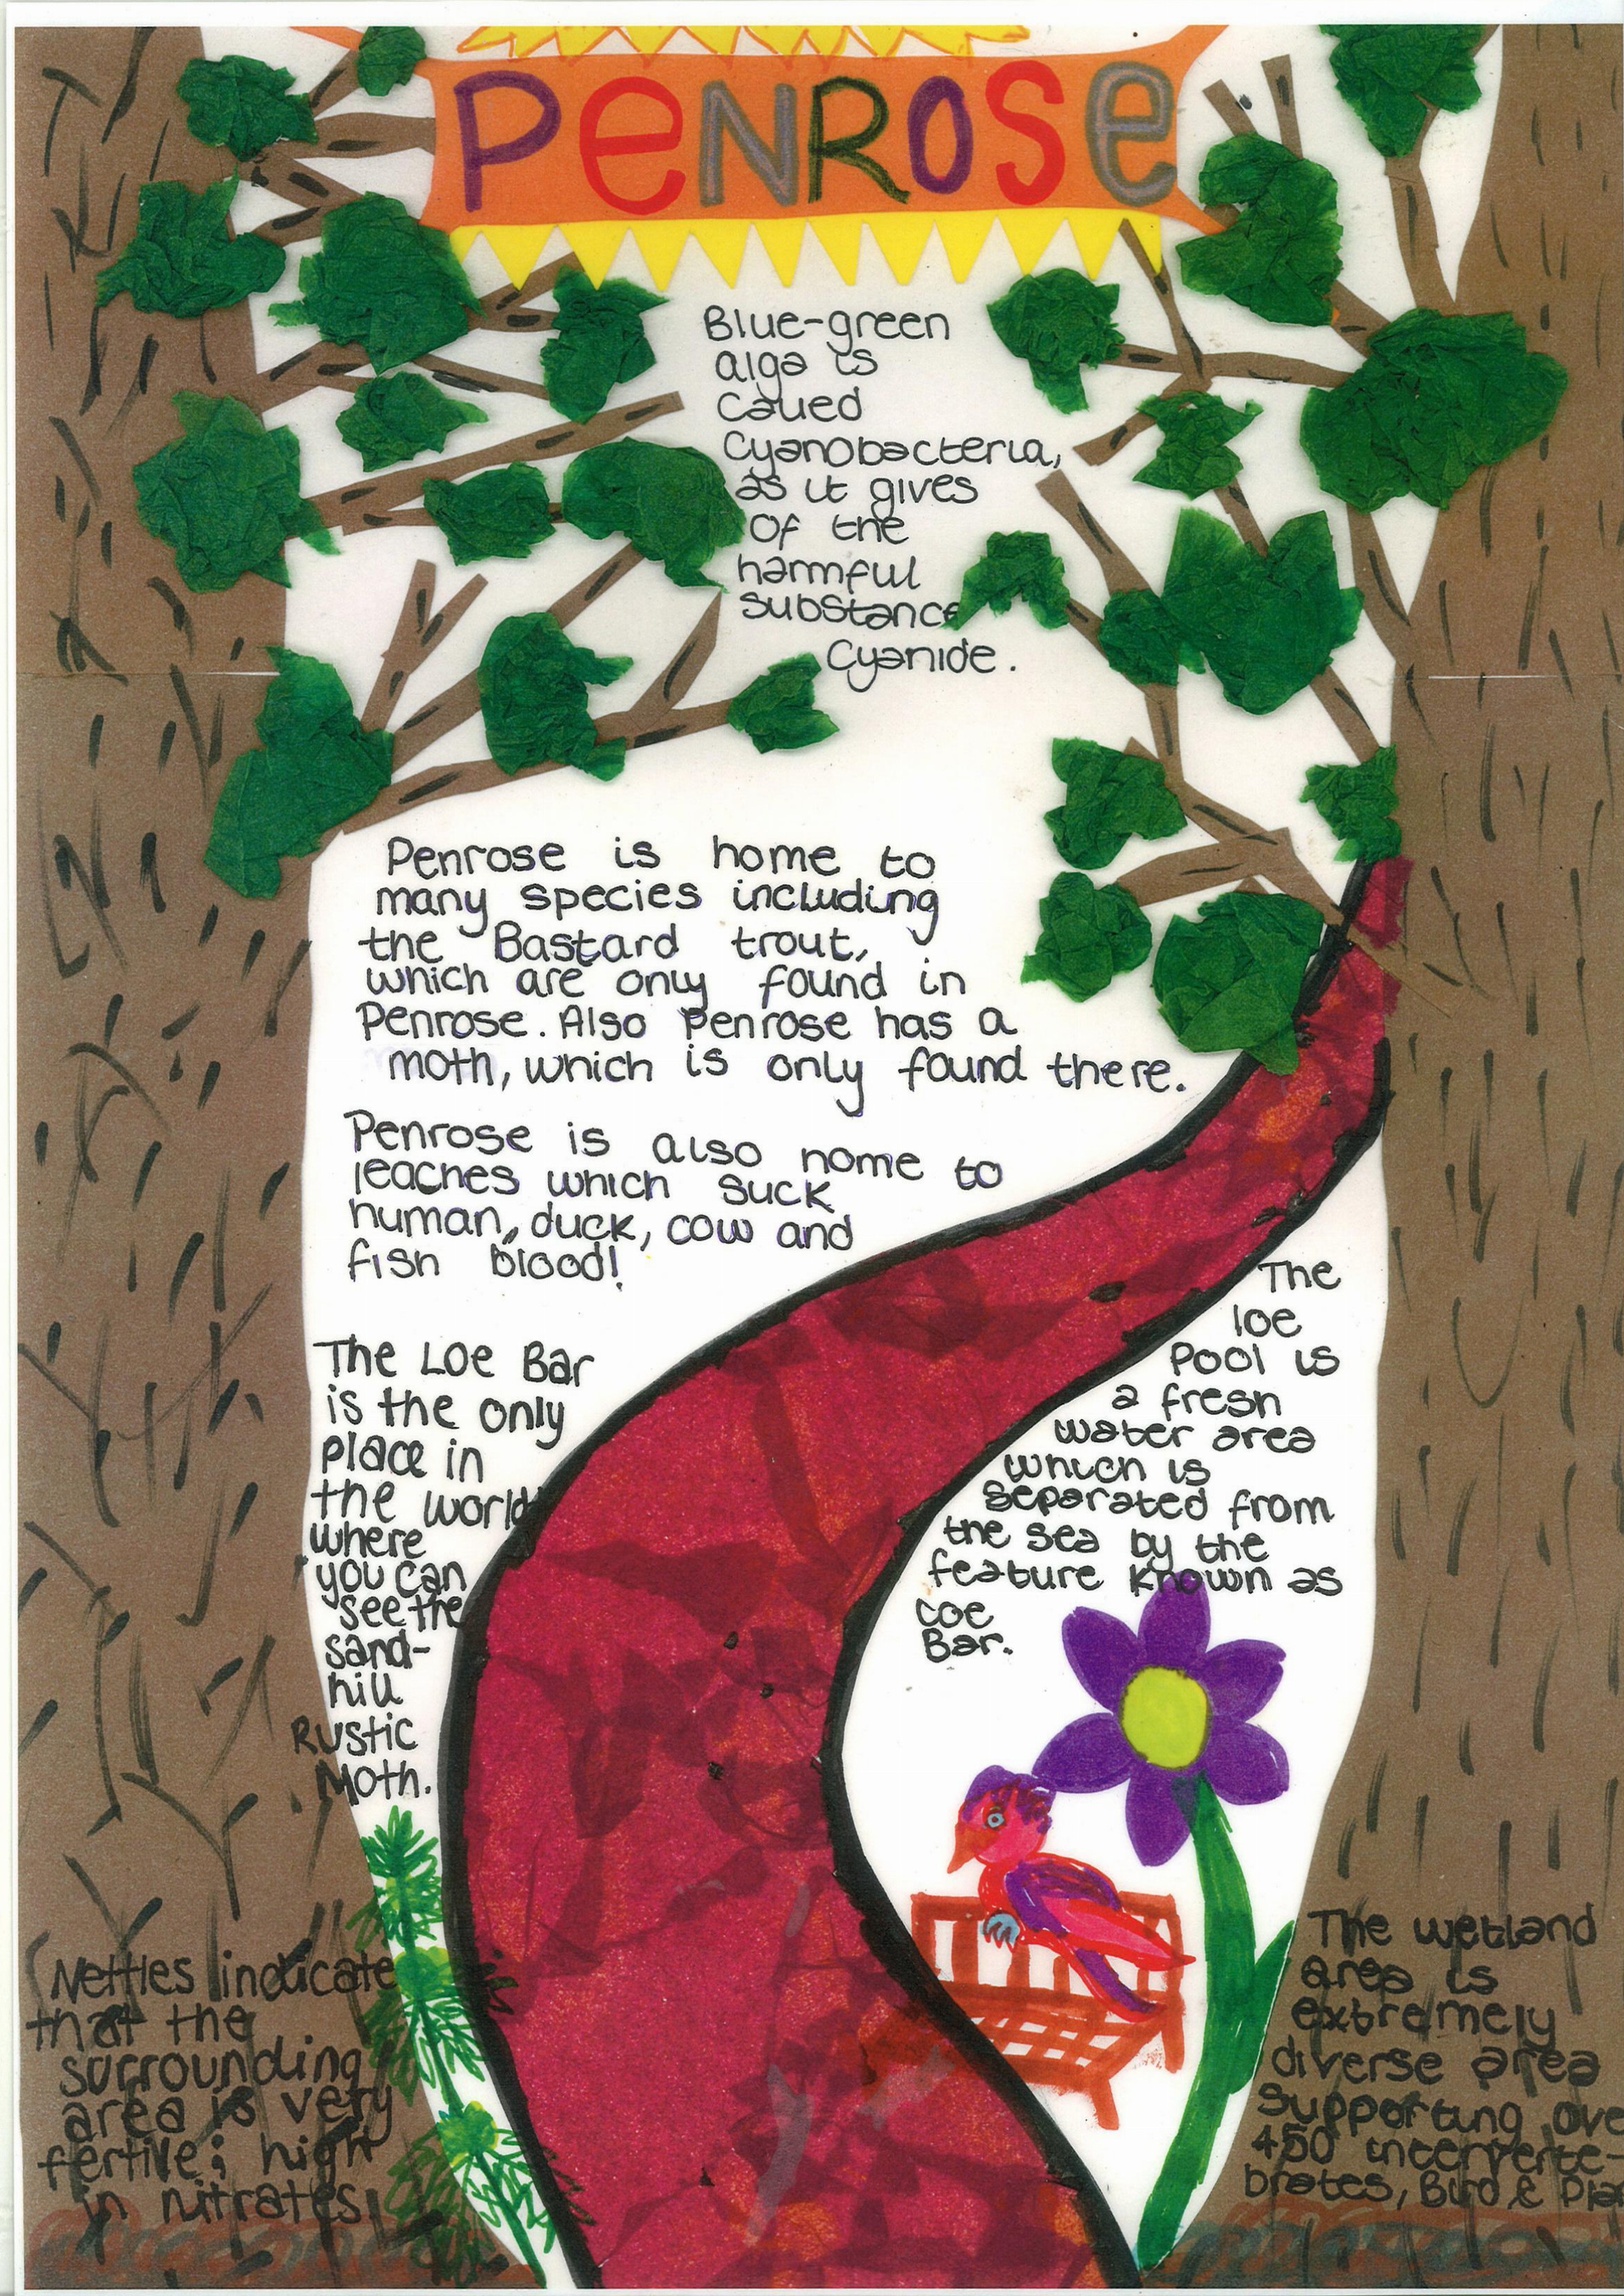 PeNROSe
Blue-green
alga is
called
Cyanobacteria,
as it gives
of the
harmful
substance
Cyanide.
Penrose is home to
many species including
the Bastard trout,
which are only found in
Penrose. Also Penrose has a
moth, which is only found there.
Penrose is also home to
leaches which suck
human, duck, cow and
fish blood!
The Loe Bar
is the only
place in
the world
where
you can
see the
sand-
hill
Rustic
Moth.
The
loe
Pool is
a fresh
water area
which is
separated from
the sea by the
feature known as
Loe
Bar.
Nettles indicate
that the
surrounding
area is very
fertile; high
in nitrates.
The wetland
area is
extremely
diverse area
supporting ove
450 interverte-
brates, Bird & Pla